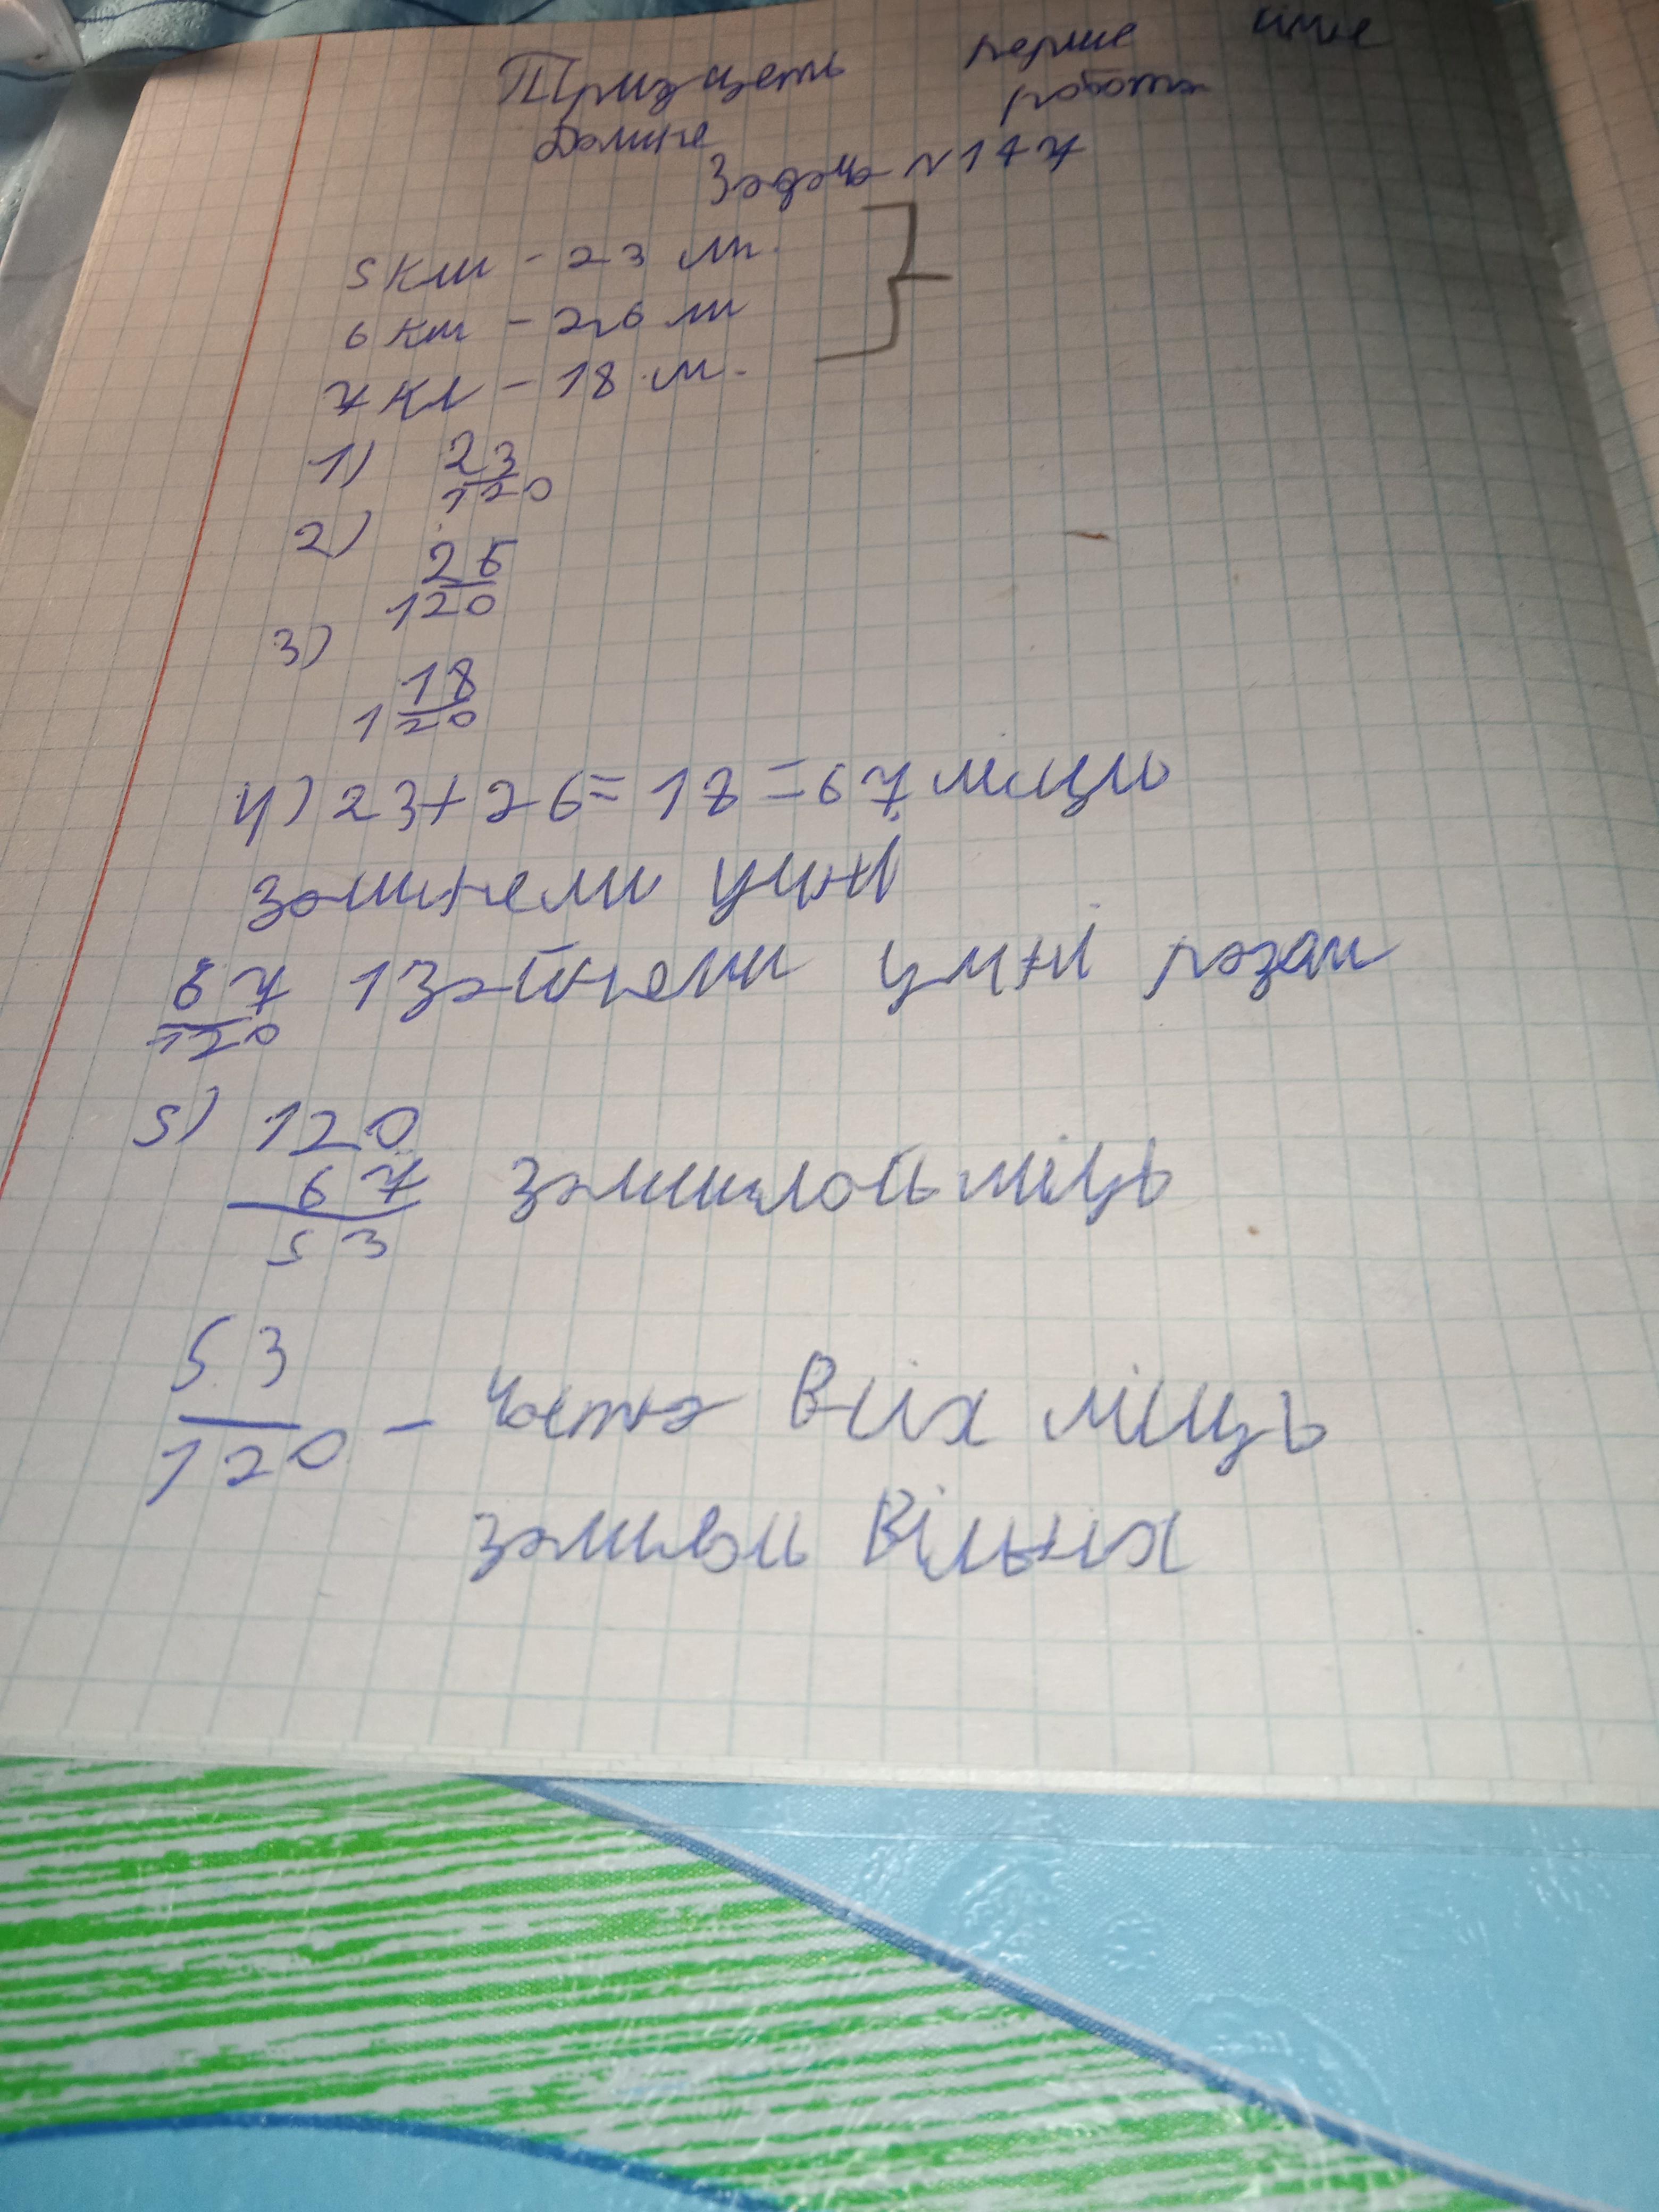 Тридцеть перше січне
Домшне робота
Задача №177
5 кл - 23 м.
6 кл - 26 м
7 кл - 18 м.
1) 23/120
2) 26/120
3) 18/120
4) 23+26=18=67 місць
зайнели учні
67/120 зайнели учні разом
5) 120
67 залишлось місць
53
53/120 - части всіх місць
вільних